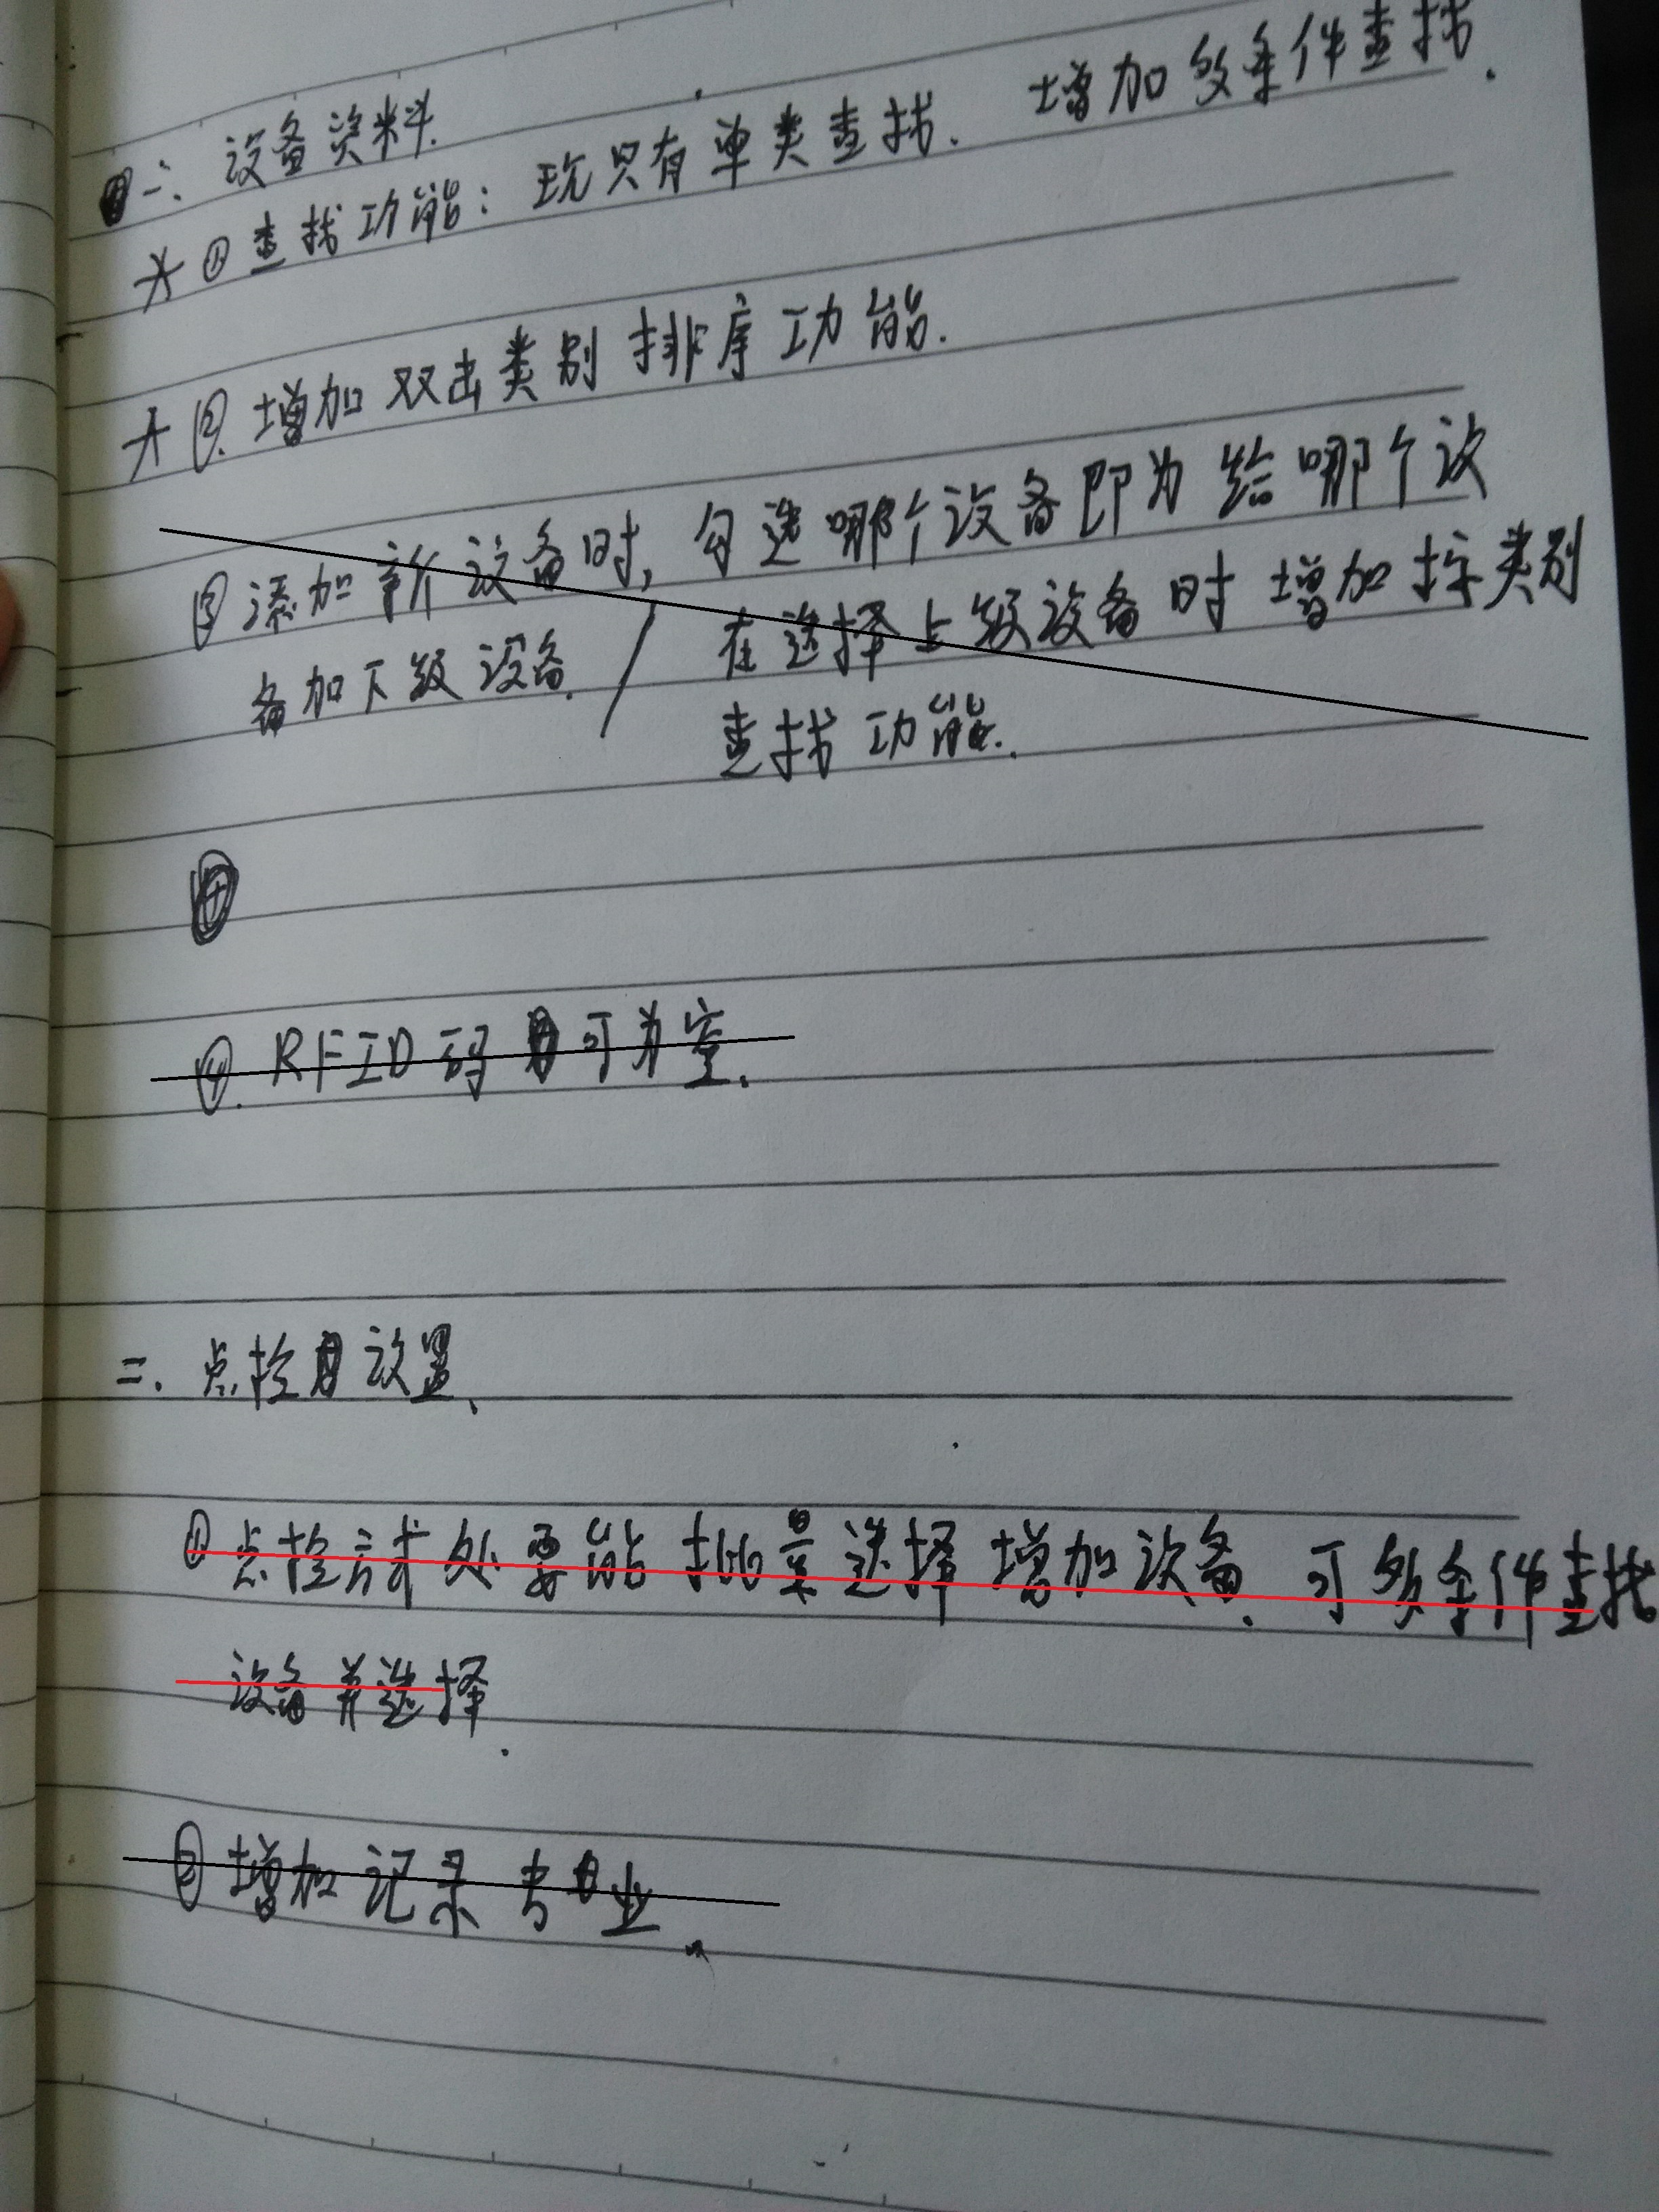 一、设备资料.
① 查找功能：现只有单类查找. 增加多条件查找.
②. 增加双击类别排序功能.
③ 添加新设备时, 勾选哪个设备即为给哪个设
备加下级设备. / 在选择上级设备时增加按类别
查找功能.
④. RFID码可为空.
二. 点检设置、
① 点检方式处要能批量选择增加设备. 可多条件查找
设备并选择.
② 增加记录专业.